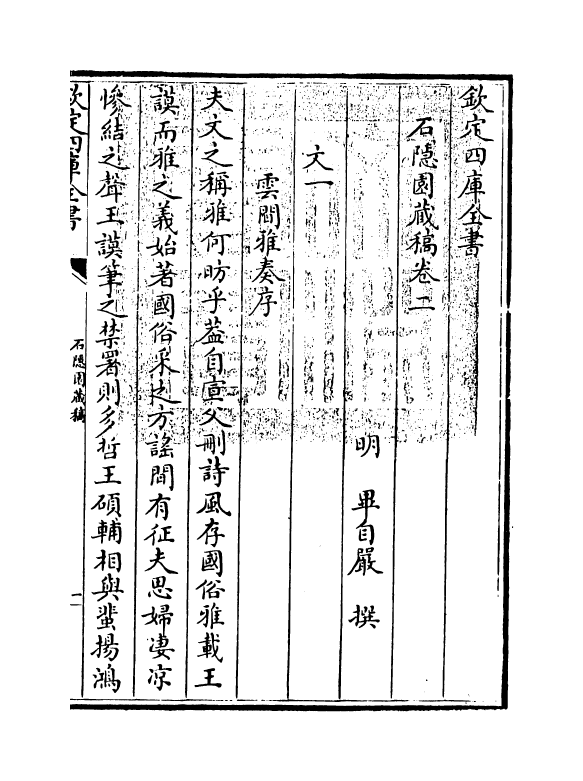 欽定四庫全書
石隱園藏稿卷二
明 畢自嚴 撰
文一
雲間雅奏序
夫文之稱雅何昉乎葢自宣父刪詩風存國俗雅載王
謨而雅之義始著國俗采之方謠間有征夫思婦凄凉
慘結之聲王謨筆之禁署則多哲王碩輔相與蜚揚鴻
欽定四庫全書
石隱園藏稿
二